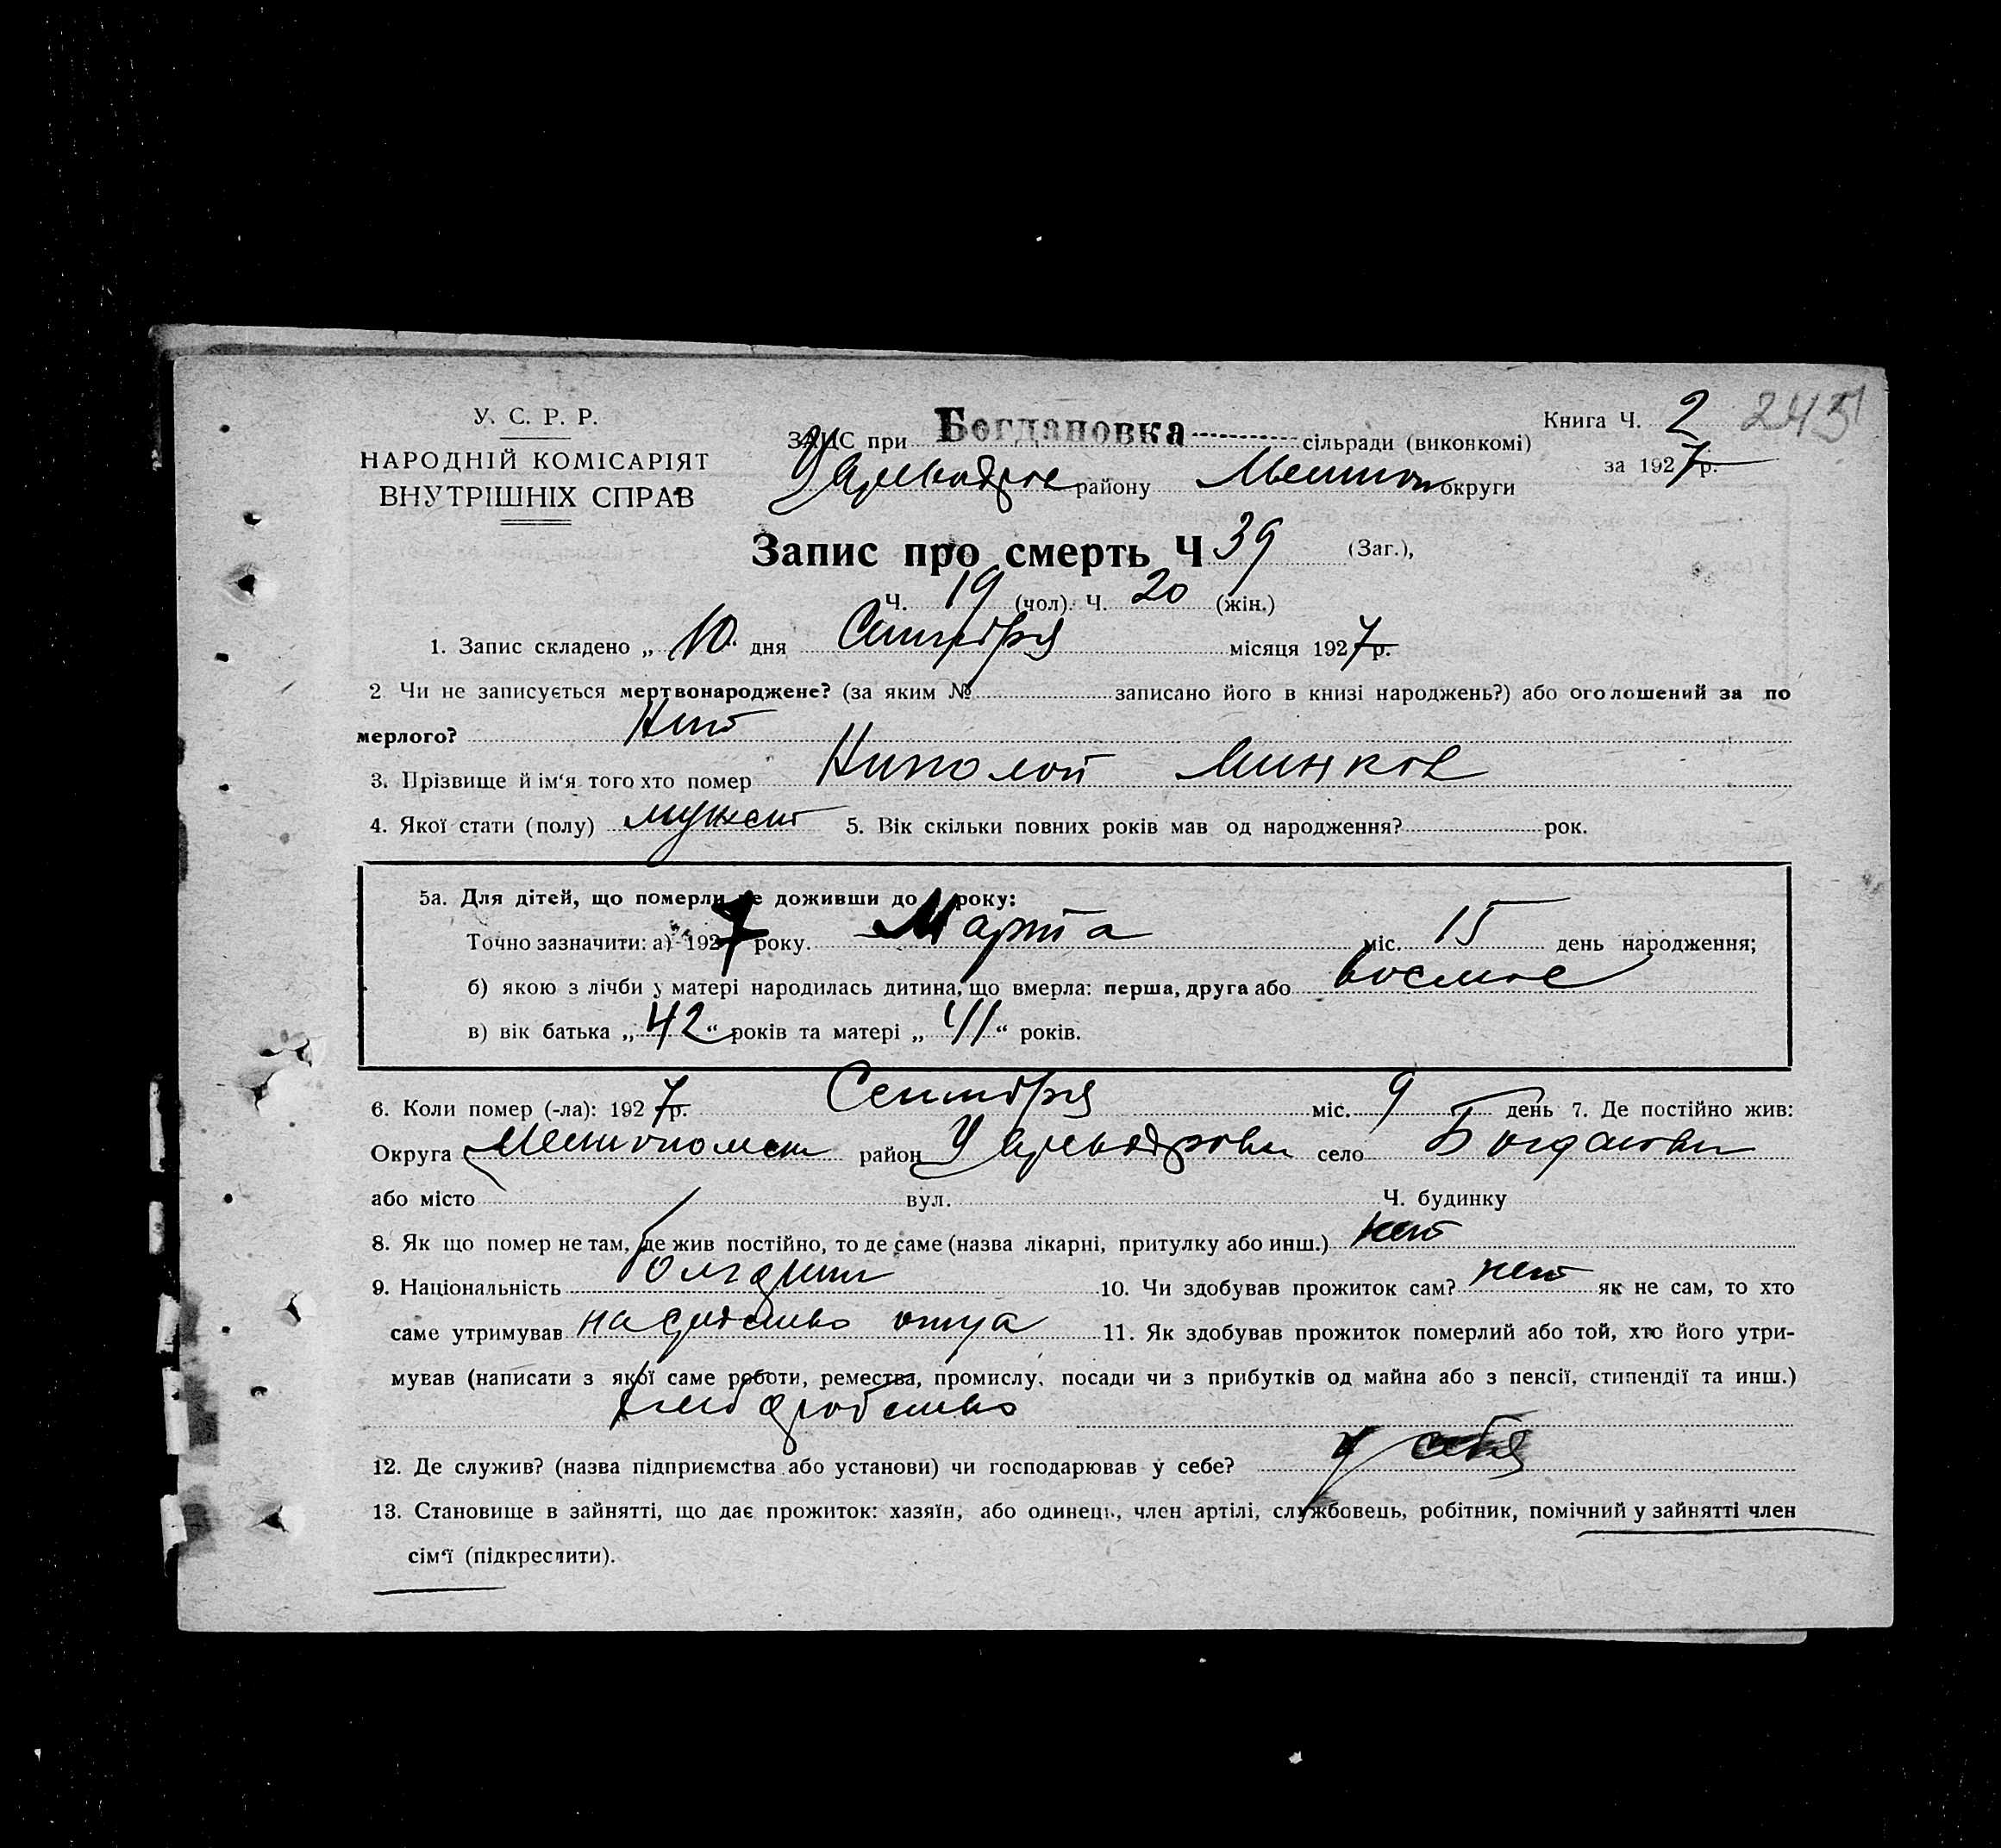 У. С. Р. Р.
НАРОДНІЙ КОМІСАРІЯТ
ВНУТРІШНІХ СПРАВ
ЗАГС при Богдановка сільради (виконкомі)
району Мелитоп округи
Книга Ч. 2 245
за 1927 р.
Запис про смерть Ч 39 (Заг.),
Ч. 19 (чол). Ч. 20 (жін.)
1. Запис складено „ 10 дня Сентября місяця 1927 р.
2 Чи не записується мертвонароджене? (за яким № записано його в книзі народжень?) або оголошений за по
мерлого? Нет
3. Прізвище й ім'я того хто помер Николай Минков
4. Якої стати (полу) мужск 5. Вік скільки повних років мав од народження? рок.
5а. Для дітей, що померли не доживши до 1 року:
Точно зазначити: а) 1927 року. Марта міс. 15 день народження;
б) якою з лічби у матері народилась дитина, що вмерла: перша, друга або восмое
в) вік батька „ 42 “ років та матері „ 41 “ років.
6. Коли помер (-ла): 1927 р. Сентября міс. 9 день 7. Де постійно жив:
Округа район село Богдановки
або місто вул. Ч. будинку
8. Як що помер не там, де жив постійно, то де саме (назва лікарні, притулку або инш.) нет
9. Національність болгарин 10. Чи здобував прожиток сам? нет як не сам, то хто
саме утримував на средства отца 11. Як здобував прожиток померлий або той, хто його утри-
мував (написати з якої саме роботи, ремества, промислу, посади чи з прибутків од майна або з пенсії, стипендії та инш.)
12. Де служив? (назва підприємства або установи) чи господарював у себе? у себя
13. Становище в зайнятті, що дає прожиток: хазяїн, або одинець, член артілі, службовець, робітник, помічний у зайнятті член
сім'ї (підкреслити).